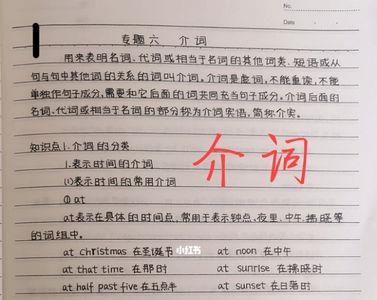 No.
Date
专题六 介词
用来表明名词、代词或相当于名词的其他词类、短语或从
句与句中其他词的关系的词叫介词。介词是虚词,不能重读,不能
单独作句子成分,需要和它后面的词共同充当句子成分。介词后面的
名词、代词或相当于名词的部分称为介词宾语,简称介宾。
知识点1.介词的分类
1.表示时间的介词
介词
(1)表示时间的常用介词
① at
at表示在具体的时间点,常用于表示钟点、夜里、中午、拂晓等
的词组中。
小红书
at christmas 在圣诞节 at noon 在中午
at that time 在那时 at sunrise 在拂晓时
at half past five 在五点半 at sunset 在日落时